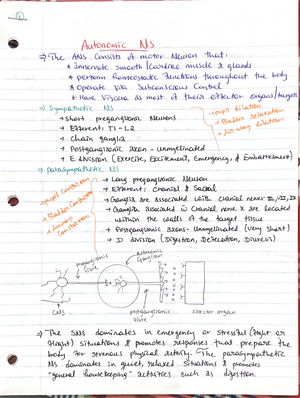 ①
Autonomic NS
⇒ The ANS consists of motor Neuron that:
* Innervate smooth/cardiac muscle & glands
* perform homeostatic functions throughout the body
* Operate via Subconscious Control
* Have Viscera as most of their effector organs/targets
⇒ Sympathetic NS
→ short preganglionic Neurons
→ Efferent: T1-L2
→ Chain ganglia
→ Postganglionic axon - unmyelinated
→ E division (Exercise, Excitement, Emergency, & Embarrassment)
→ pupil dilation
→ Bladder relaxation
→ Airway dilation
⇒ parasympathetic NS
→ Long preganglionic Neuron
→ Efferent: Cranial & Sacral
→ Ganglia are associated with cranial nerves III, VII, IX
→ Ganglia associated w Cranial nerve X are located
within the walls of the target tissue
→ Postganglionic axons - Unmyelinated (very short)
→ D division (Digestion, Defecation, Diuresis)
→ pupil constriction
→ Bladder Constriction
→ Airway Constriction
preganglionic
fibre
Autonomic
Ganglion
CNS
postganglionic
fibre
effector organ
⇒ The SNS dominates in emergency or stressful (fight or
flight) situations & promotes responses that prepare the
body for strenuous physical activity. (The parasympathetic
NS dominates in quiet, relaxed situations & promotes
"general housekeeping" activities such as digestion.